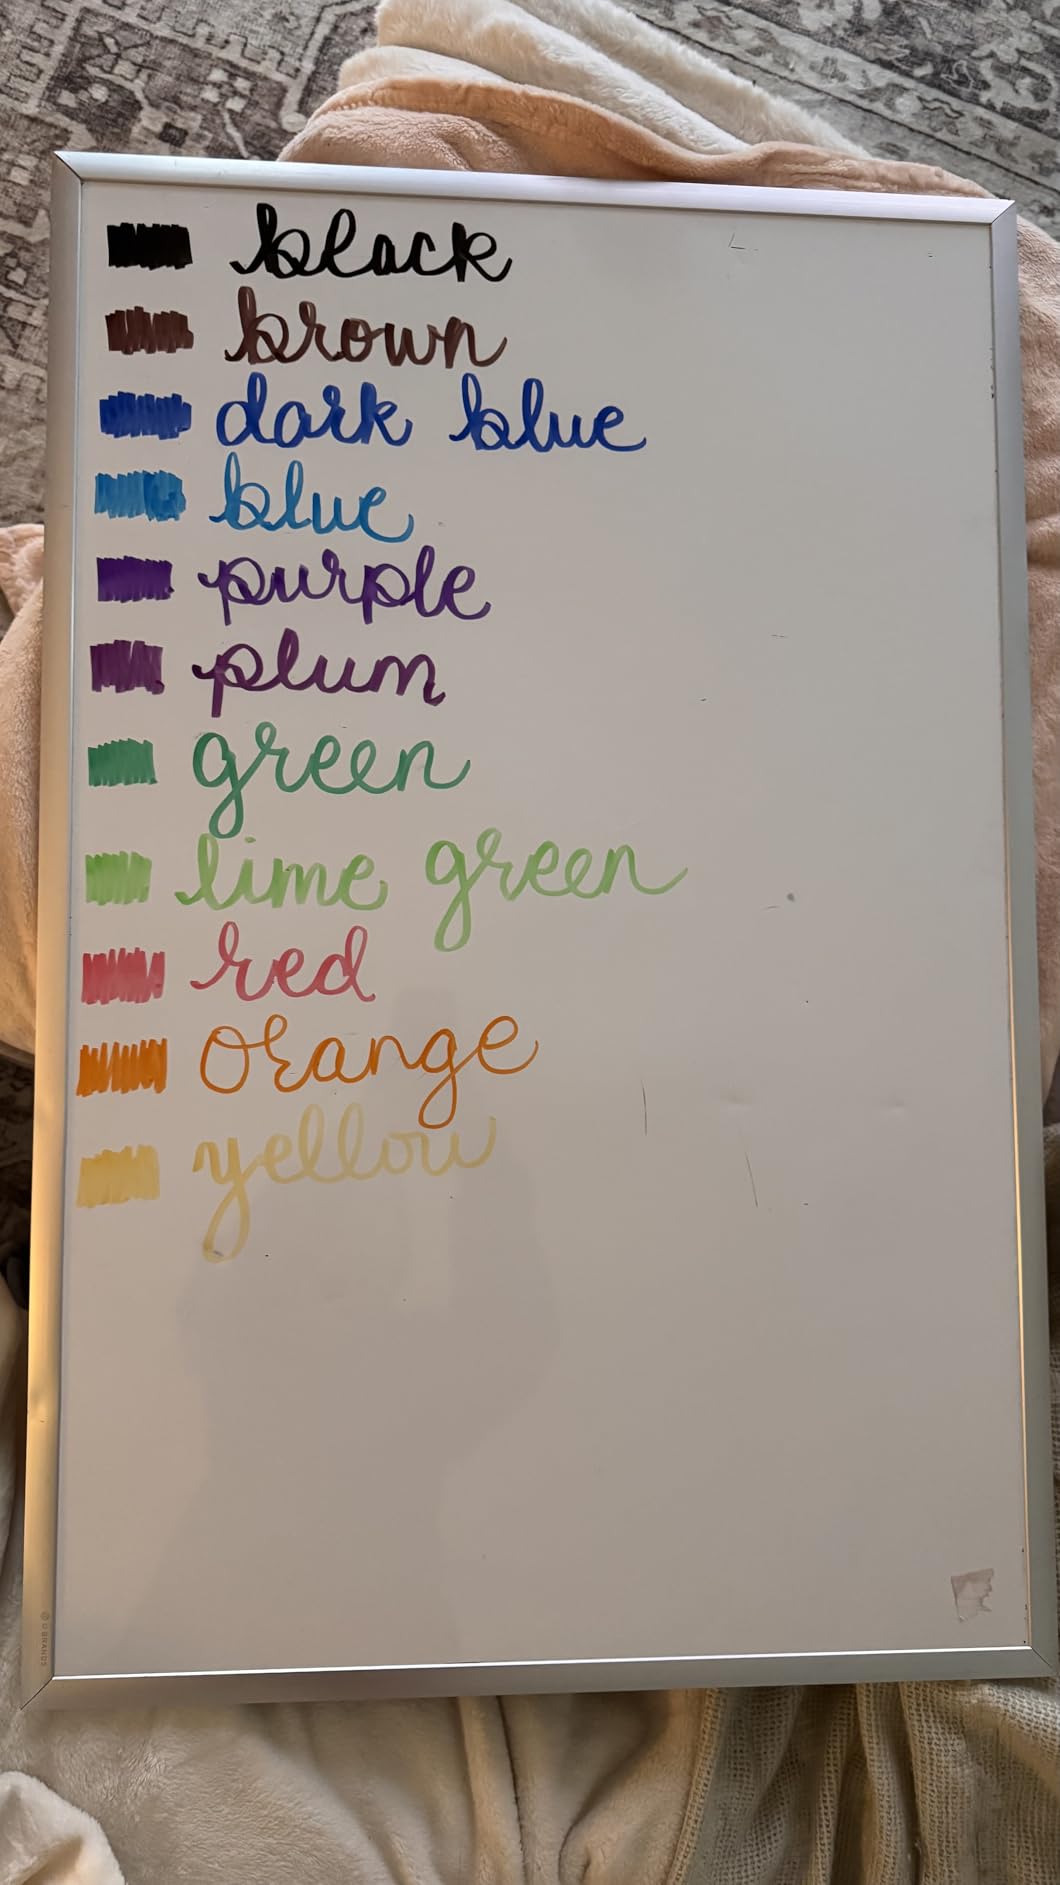 black
brown
dark blue
blue
purple
plum
green
lime green
red
orange
yellow
U BRANDS